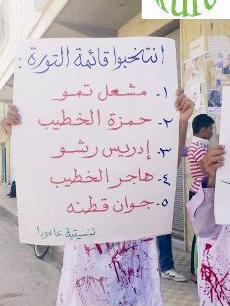 انتخبوا قائمة الثورة :
١- مشعل تمو
٢- حمزة الخطيب
٣- إدريس رشو
٤- هاجر الخطيب
٥- جوان قطنه
تنسيقية عامودا